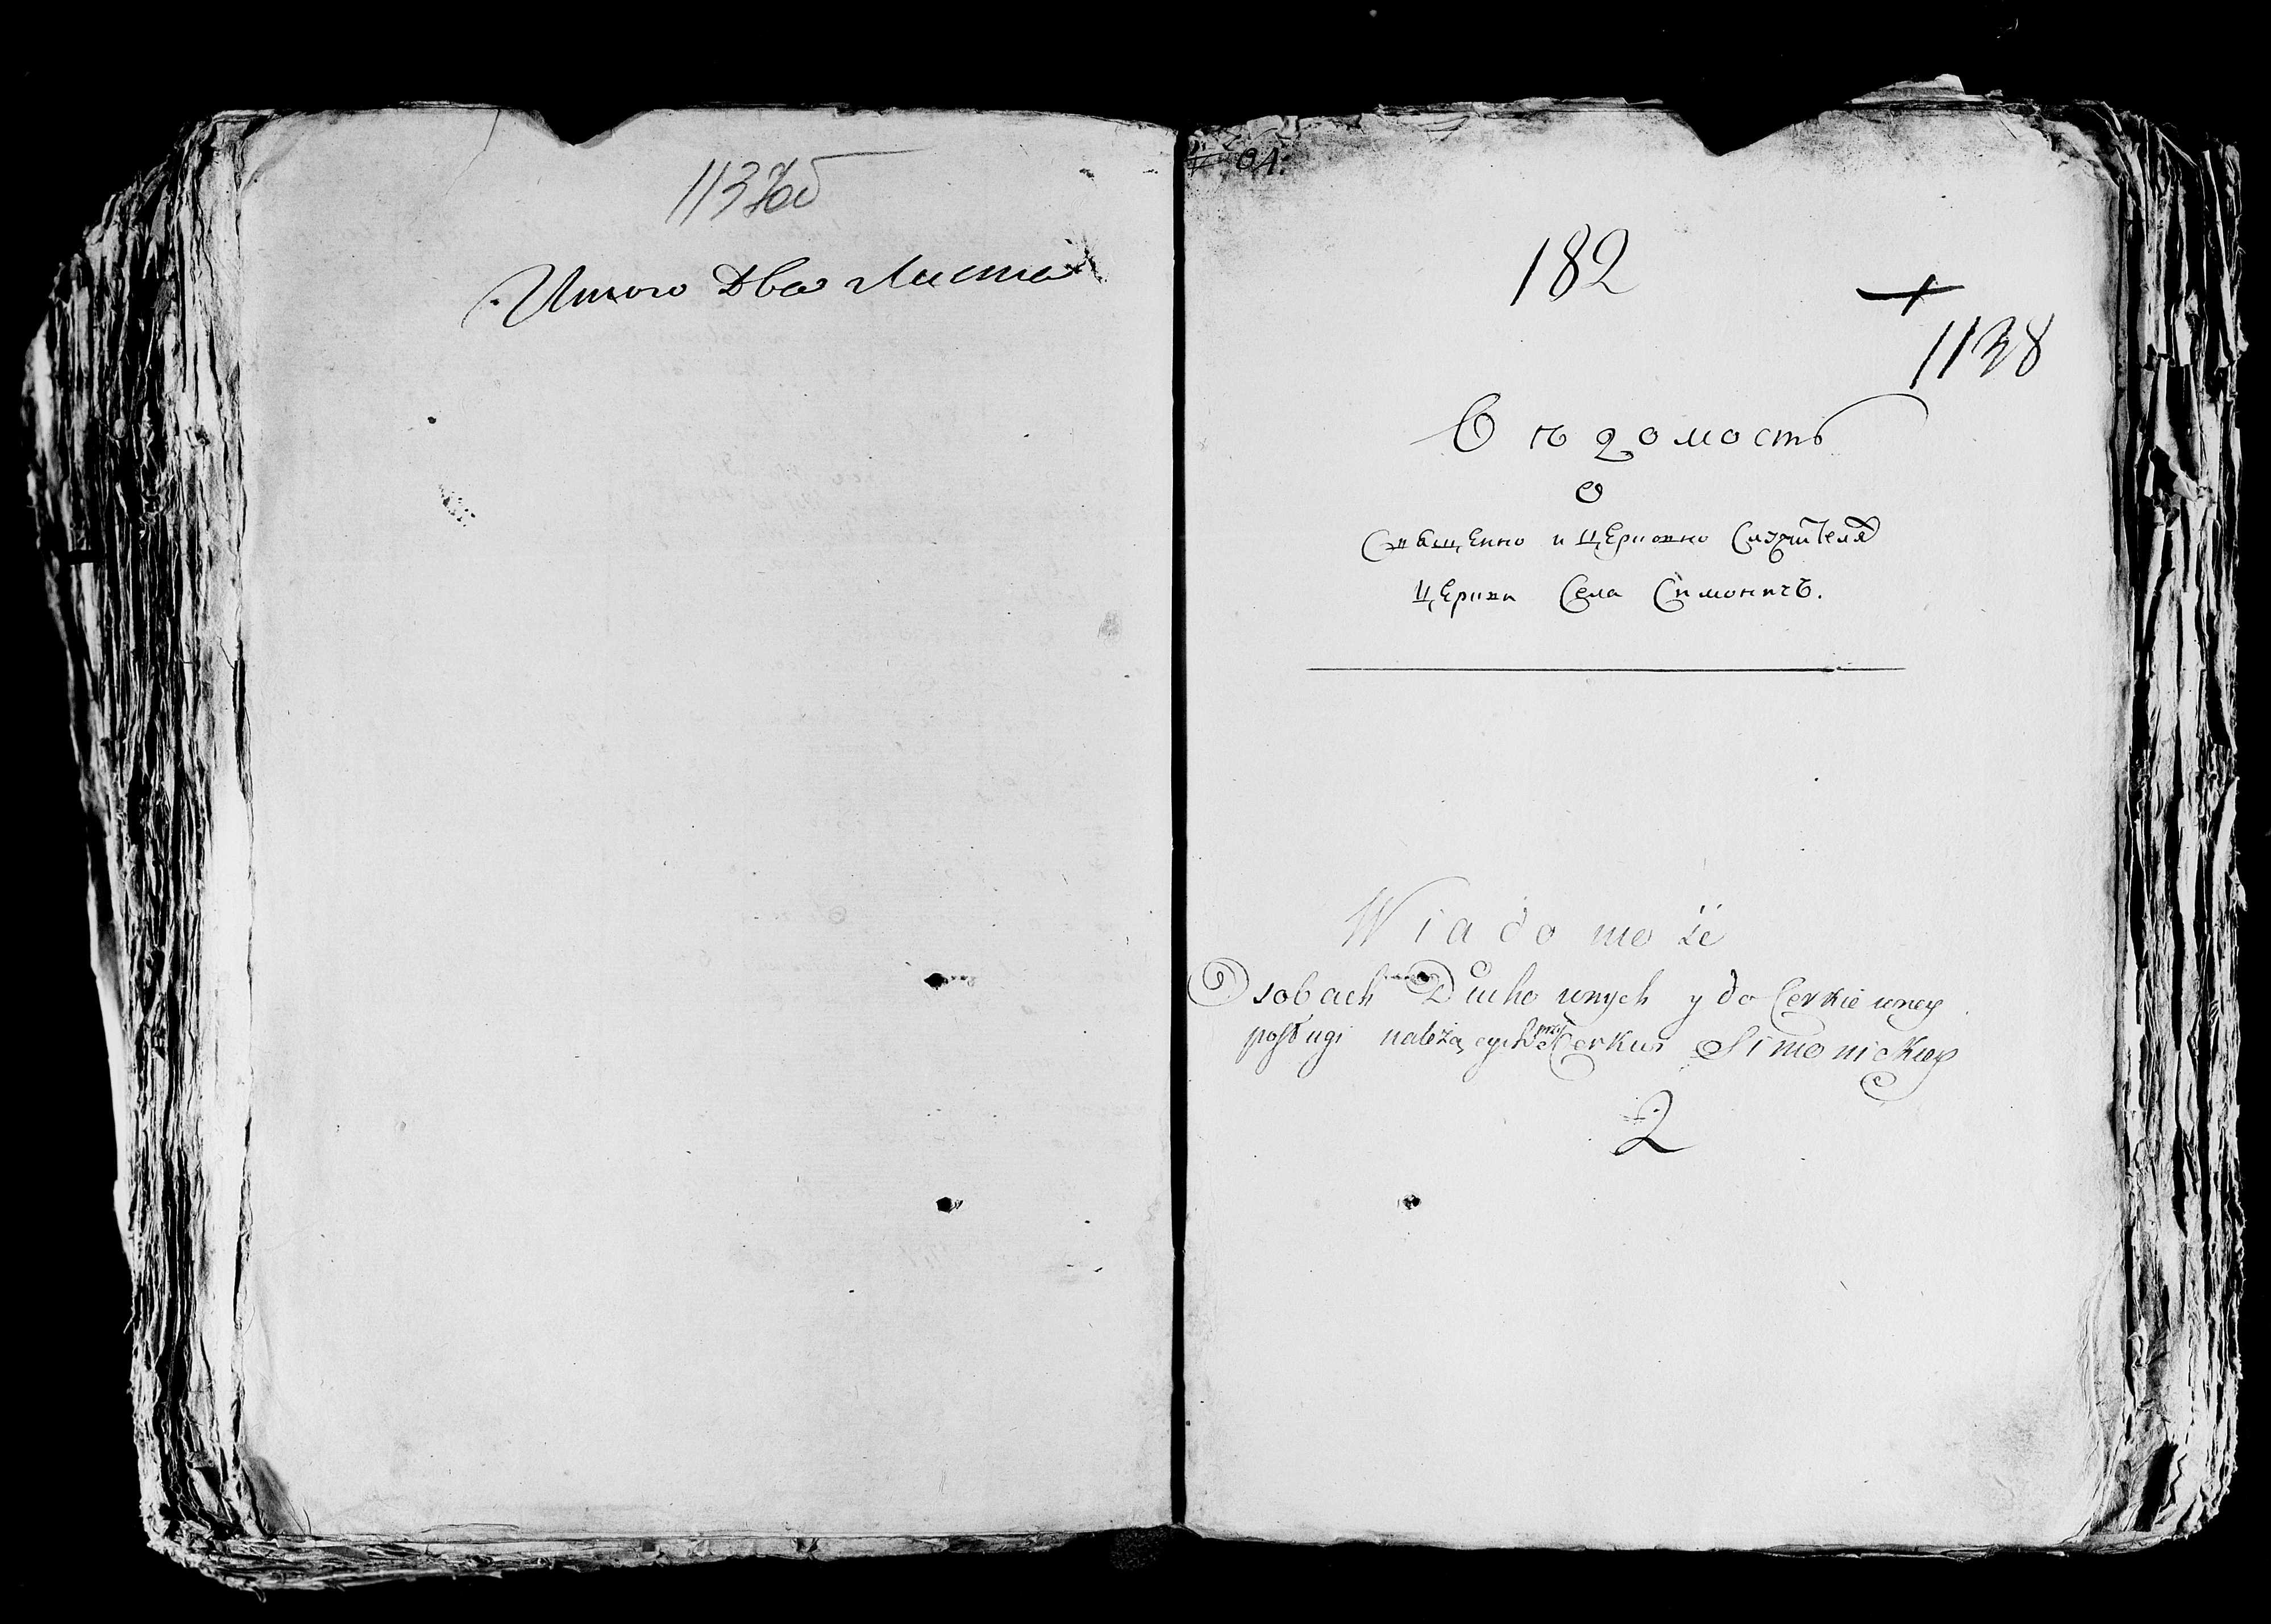 1137об
Итого два листа
182
1138
Вѣдомость
о
Священно и церковно служителяхъ
Церкви Села Симоничъ.
Wiadomość
O Osobach Duchownych y do Cerkiewney
posługi należących przy Cerkwi Simonickiey
2